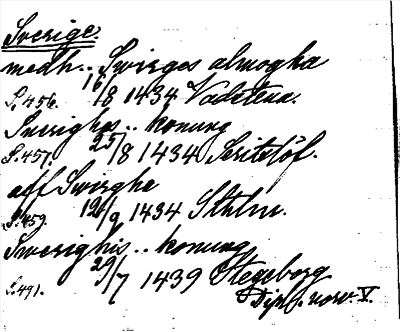 Sverige.
medh.. Swirges almogha
S.456. 16/8 1434 Vadstena.
Swerighes.. konung
S.457. 25/8 1434 Skitslöf.
aff Swerghe
S.459. 12/9 1434 Sthlm.
Swerighis.. konung
S.491. 29/7 1439 Stegeborg
Dipl. norv. V.